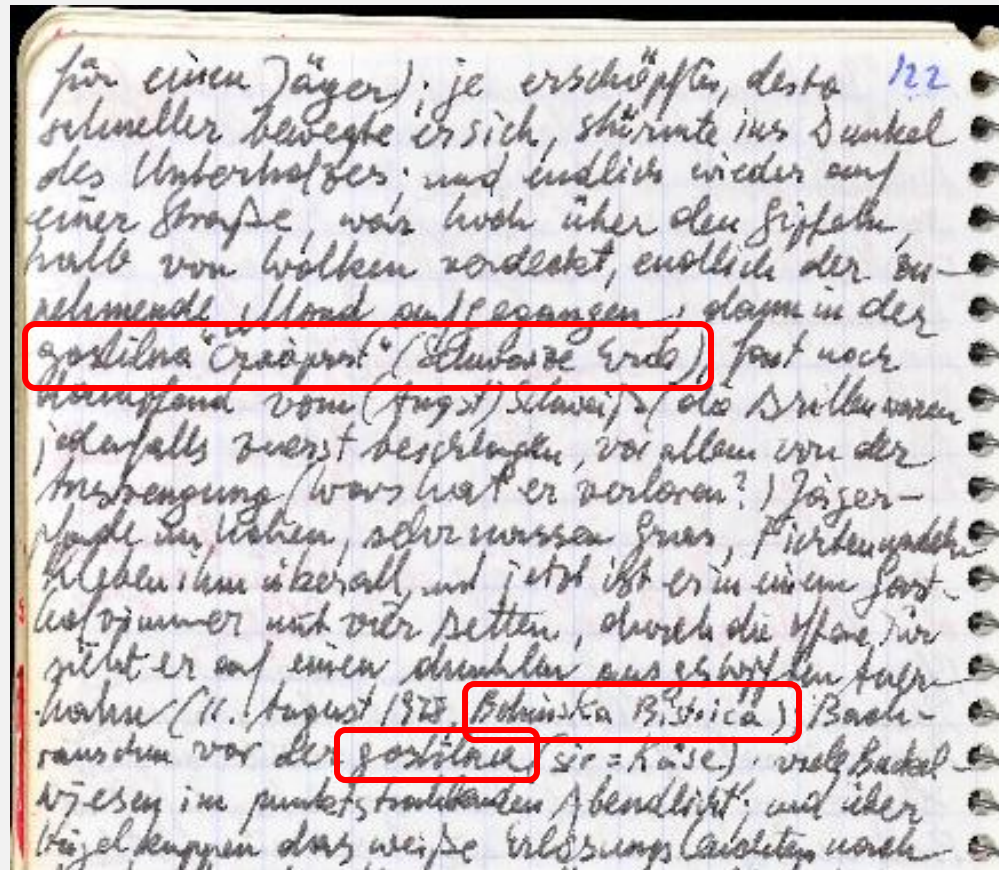 für einen Jäger); je erschöpfter, desto 122
schneller bewegte er sich, stürmte ins Dunkel
des Unterholzes; und endlich wieder auf
einer Straße, war hoch über den Gipfeln,
halb von Wolken verdeckt, endlich der zu-
nehmende Mond aufgegangen; dann in der
gostilna "Črna prst" (Schwarze Erde), fast noch
dampfend vom (Angst) Schweiß (die Brillen waren
jedenfalls zuerst beschlagen, vor allem von der
Anstrengung (was hat er verloren?) Jäger-
pfade im hohen, sehr nassen Gras, Fichtennadeln
kleben ihm überall, und jetzt ist er in einem Gast-
hofzimmer mit vier Betten, durch die offene Tür
sieht er auf einen dunklen ausgestopften Auer-
hahn (11. August 1978, Bohinjska Bistrica); Bach-
rauschen vor der gostilna (sir = Käse) viele Buckel-
wiesen im Abendlicht; und über
Hügelkuppen das weiße nach